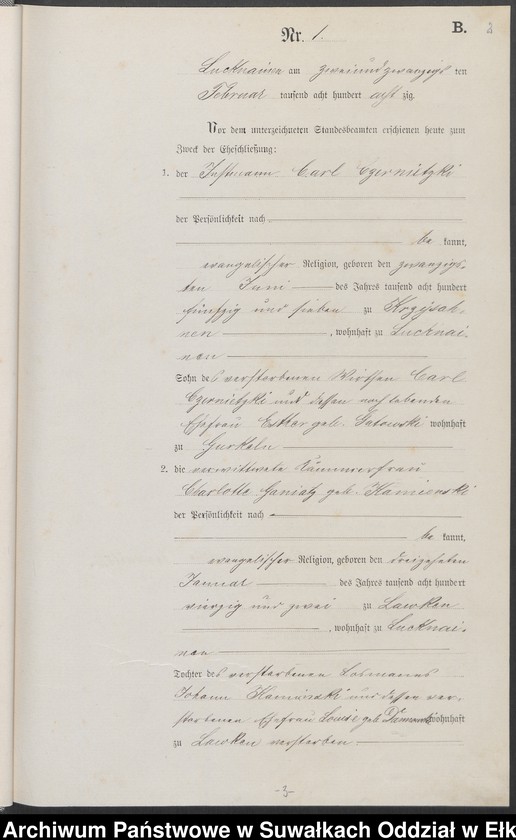 B. 2
Nr. 1.
Lucknainen am zweiundzwanzigs ten
Februar tausend acht hundert acht zig.
Vor dem unterzeichneten Standesbeamten erschienen heute zum
Zweck der Eheschließung:
1. der Instmann Carl Czernietzki
der Persönlichkeit nach
be kannt,
evangelischer Religion, geboren den zwanzigs-
ten Juni des Jahres tausend acht hundert
fünfzig und sieben zu
nen, wohnhaft zu Lucknai-
nen
Sohn des verstorbenen Wirthen Carl
Czernietzki und dessen noch lebenden
Ehefrau Esther geb. wohnhaft
zu Gurkeln
2. die verwittwete Kämmerfrau
Charlotte Ganiatz geb. Kamienski
der Persönlichkeit nach
be kannt,
evangelischer Religion, geboren den dreizehnten
Januar des Jahres tausend acht hundert
vierzig und zwei zu Lawken
, wohnhaft zu Lucknai-
nen
Tochter des verstorbenen Losmanns
Johann Kamienski und dessen ver-
storbenen Ehefrau geb. wohnhaft
zu Lawken verstorben
-3-
Archiwum Państwowe w Suwałkach Oddział w Ełk